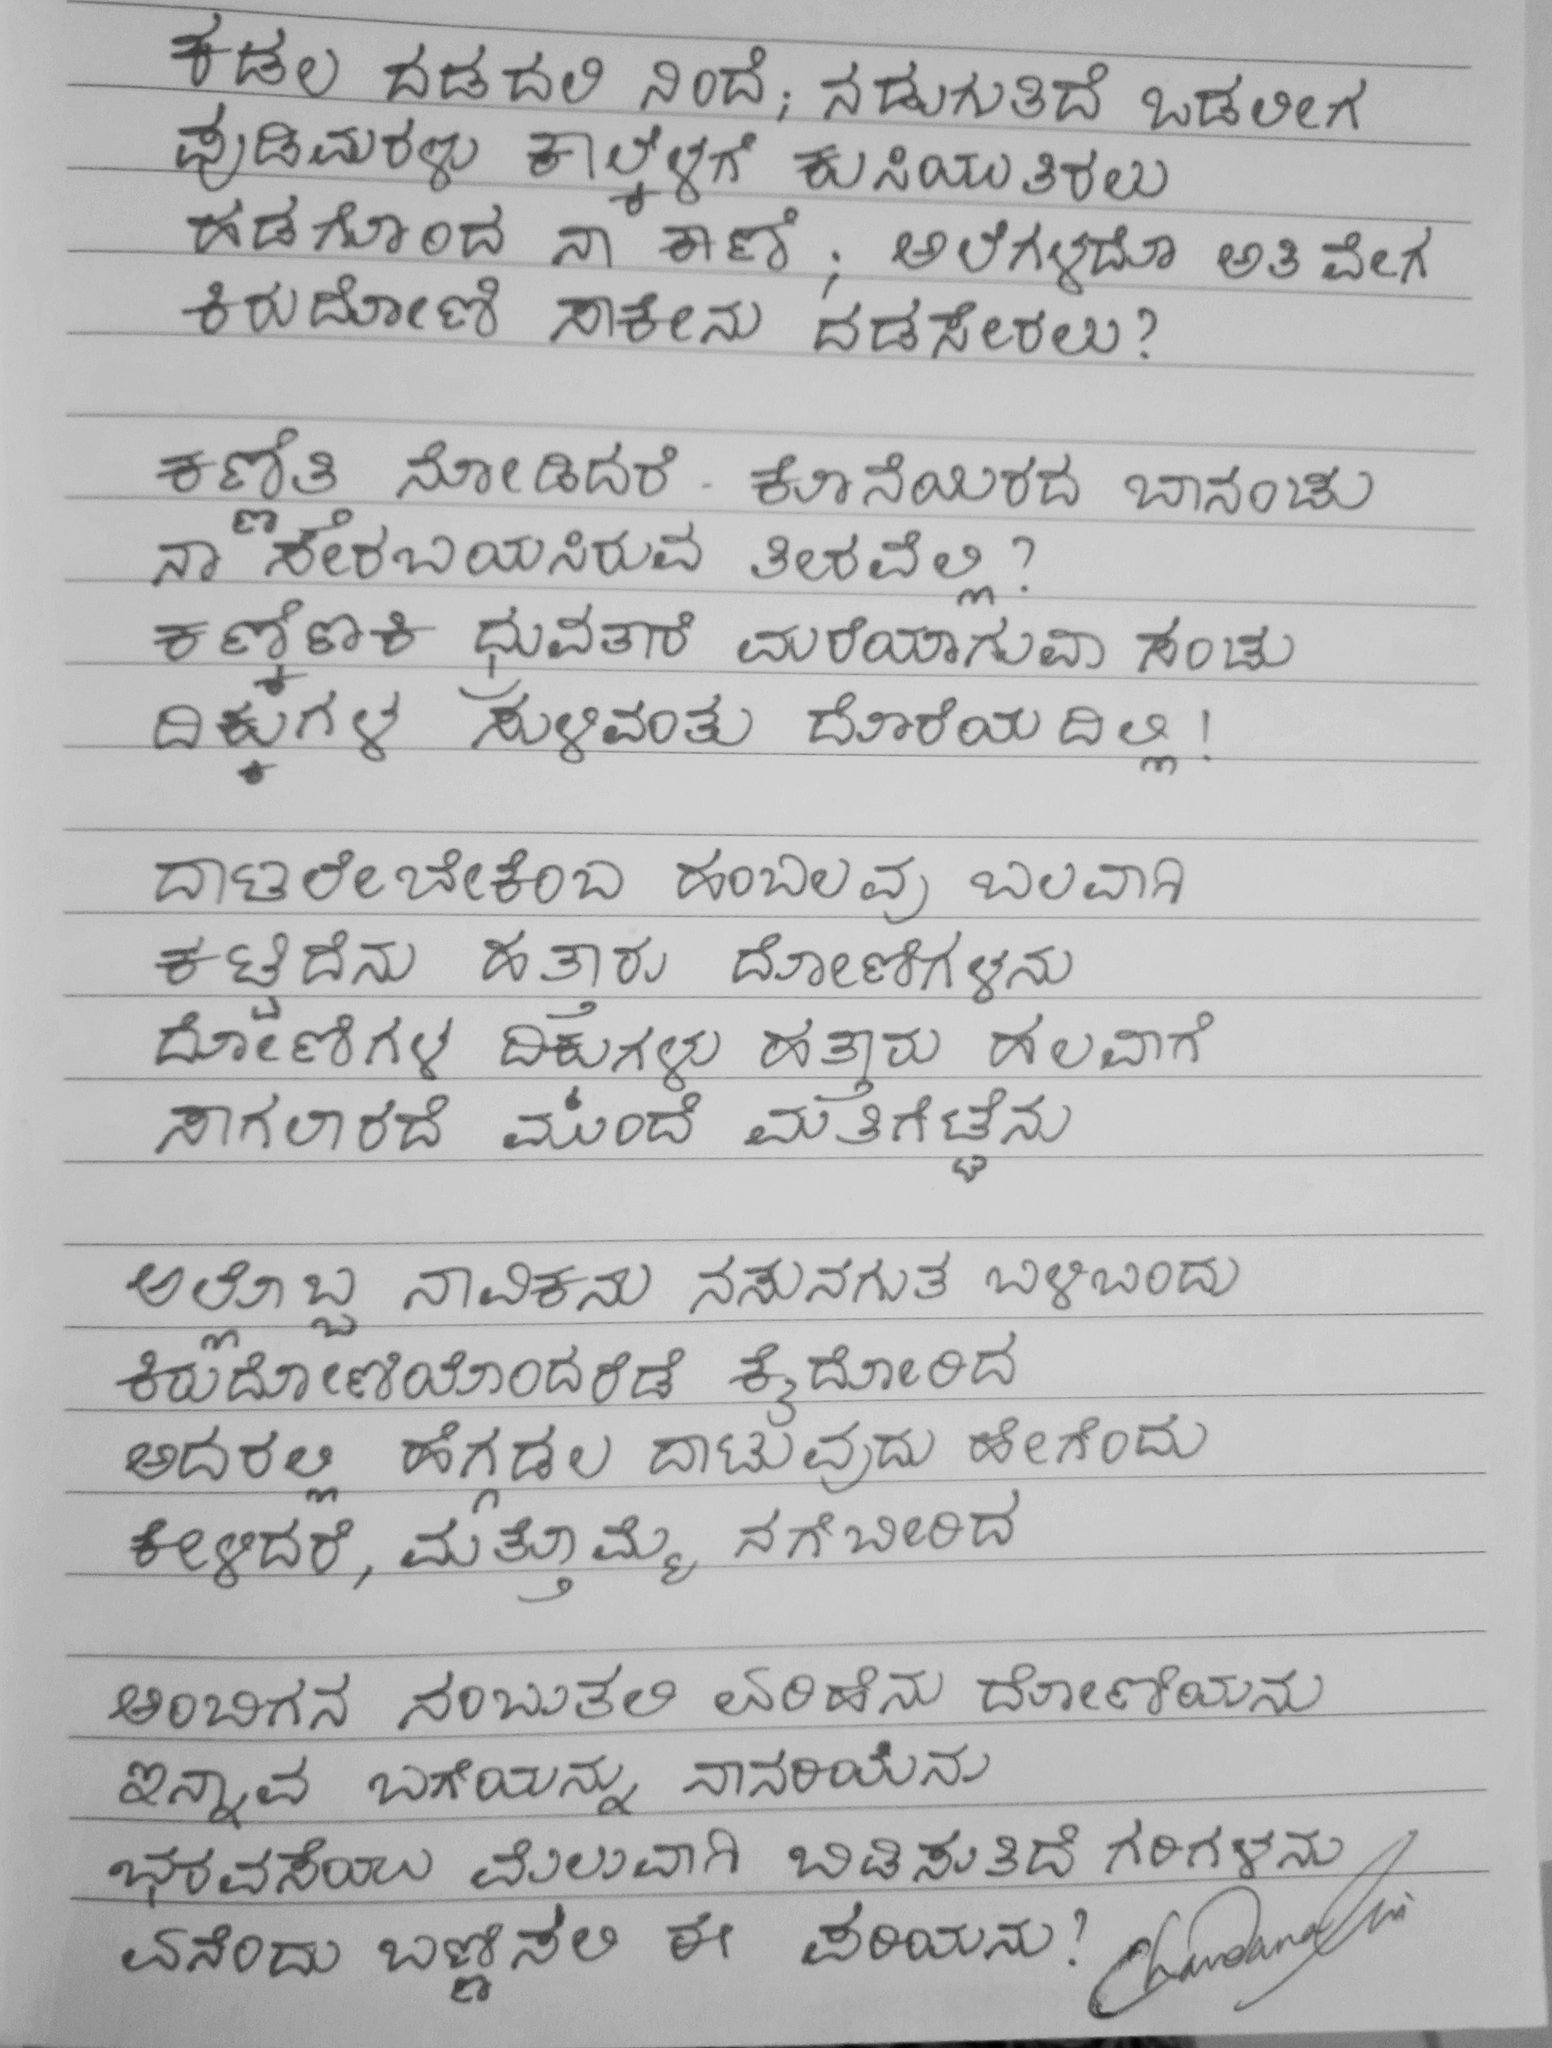 ಕಡಲ ದಡದಲಿ ನಿಂದೆ; ನಡುಗುತಿದೆ ಒಡಲೀಗ
ಪುಡಿಮರಳು ಕಾಲ್ಕೆಳಗೆ ಕುಸಿಯುತಿರಲು
ಹಡಗೊಂದ ನಾ ಕಾಣೆ; ಅಲೆಗಳದೊ ಅತಿ ವೇಗ
ಕಿರುದೋಣಿ ಸಾಕೇನು ದಡಸೇರಲು?
ಕಣ್ಣೆತ್ತಿ ನೋಡಿದರೆ ಕೊನೆಯಿರದ ಬಾನಂಚು
ನಾ ಸೇರಬಯಸಿರುವ ತೀರವೆಲ್ಲಿ?
ಕಣ್ಕೆಣಕಿ ಧ್ರುವತಾರೆ ಮರೆಯಾಗುವಾ ಸಂಚು
ದಿಕ್ಕುಗಳ ಸುಳಿವಂತು ದೊರೆಯದಿಲ್ಲಿ!
ದಾಟಲೇಬೇಕೆಂಬ ಹಂಬಲವು ಬಲವಾಗಿ
ಕಟ್ಟಿದೆನು ಹತ್ತಾರು ದೋಣಿಗಳನು
ದೋಣಿಗಳ ದಿಕ್ಕುಗಳು ಹತ್ತಾರು ಹಲವಾಗೆ
ಸಾಗಲಾರದೆ ಮುಂದೆ ಮತಿಗೆಟ್ಟೆನು
ಅಲ್ಲೊಬ್ಬ ನಾವಿಕನು ನಸುನಗುತ ಬಳಿಬಂದು
ಕಿರುದೋಣಿಯೊಂದರೆಡೆ ಕೈದೋರಿದ
ಅದರಲ್ಲಿ ಹೆಗ್ಗಡಲ ದಾಟುವುದು ಹೇಗೆಂದು
ಕೇಳಿದರೆ, ಮತ್ತೊಮ್ಮೆ ನಗೆಬೀರಿದ
ಅಂಬಿಗನ ನಂಬುತಲಿ ಏರಿಹೆನು ದೋಣಿಯನು
ಇನ್ನಾವ ಬಗೆಯನ್ನು ನಾನರಿಯೆನು
ಭರವಸೆಯು ಮೆಲುವಾಗಿ ಬಿಡಿಸುತಿದೆ ಗರಿಗಳನು
ಏನೆಂದು ಬಣ್ಣಿಸಲಿ ಈ ಪರಿಯನು?